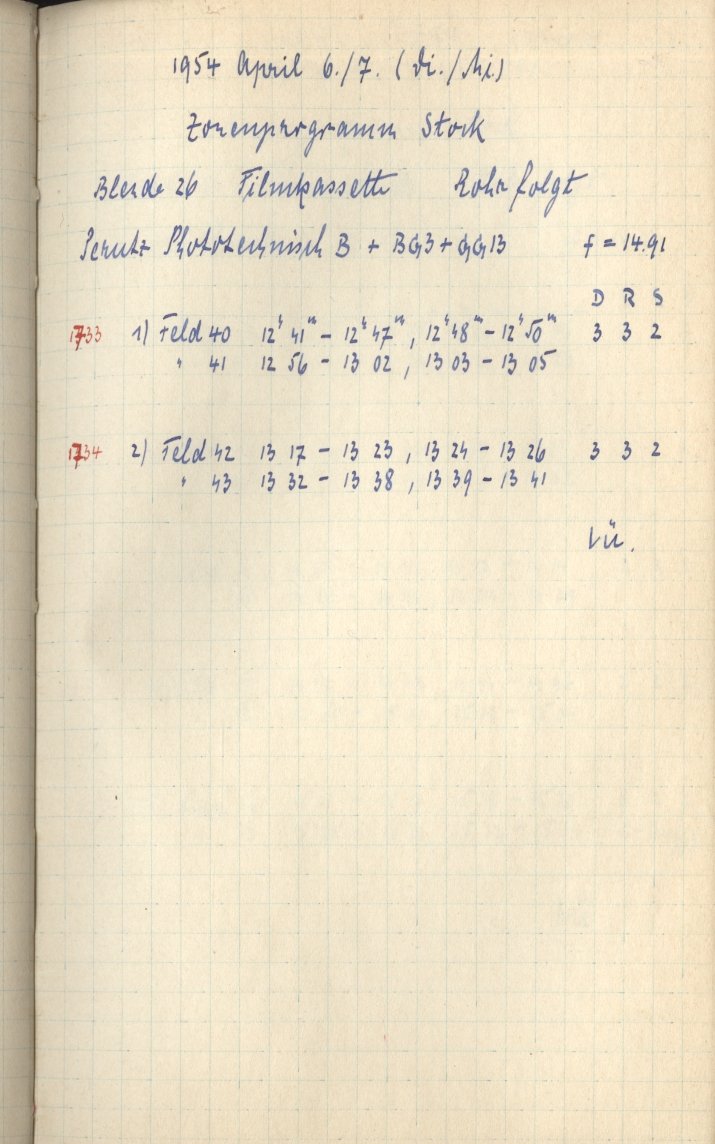 1954 April 6./7. (Di./Mi.)
Zonenprogramm Stock
Blende 26 Filmkassette Rohr folgt
Perutz Phototechnisch B + BG3 + GG13 f = 14.91
D R S
1733 1) Feld 40 12ʰ 41ᵐ – 12ʰ 47ᵐ, 12ʰ 48ᵐ – 12ʰ 50ᵐ 3 3 2
" 41 12 56 – 13 02, 13 03 – 13 05
1734 2) Feld 42 13 17 – 13 23, 13 24 – 13 26 3 3 2
" 43 13 32 – 13 38, 13 39 – 13 41